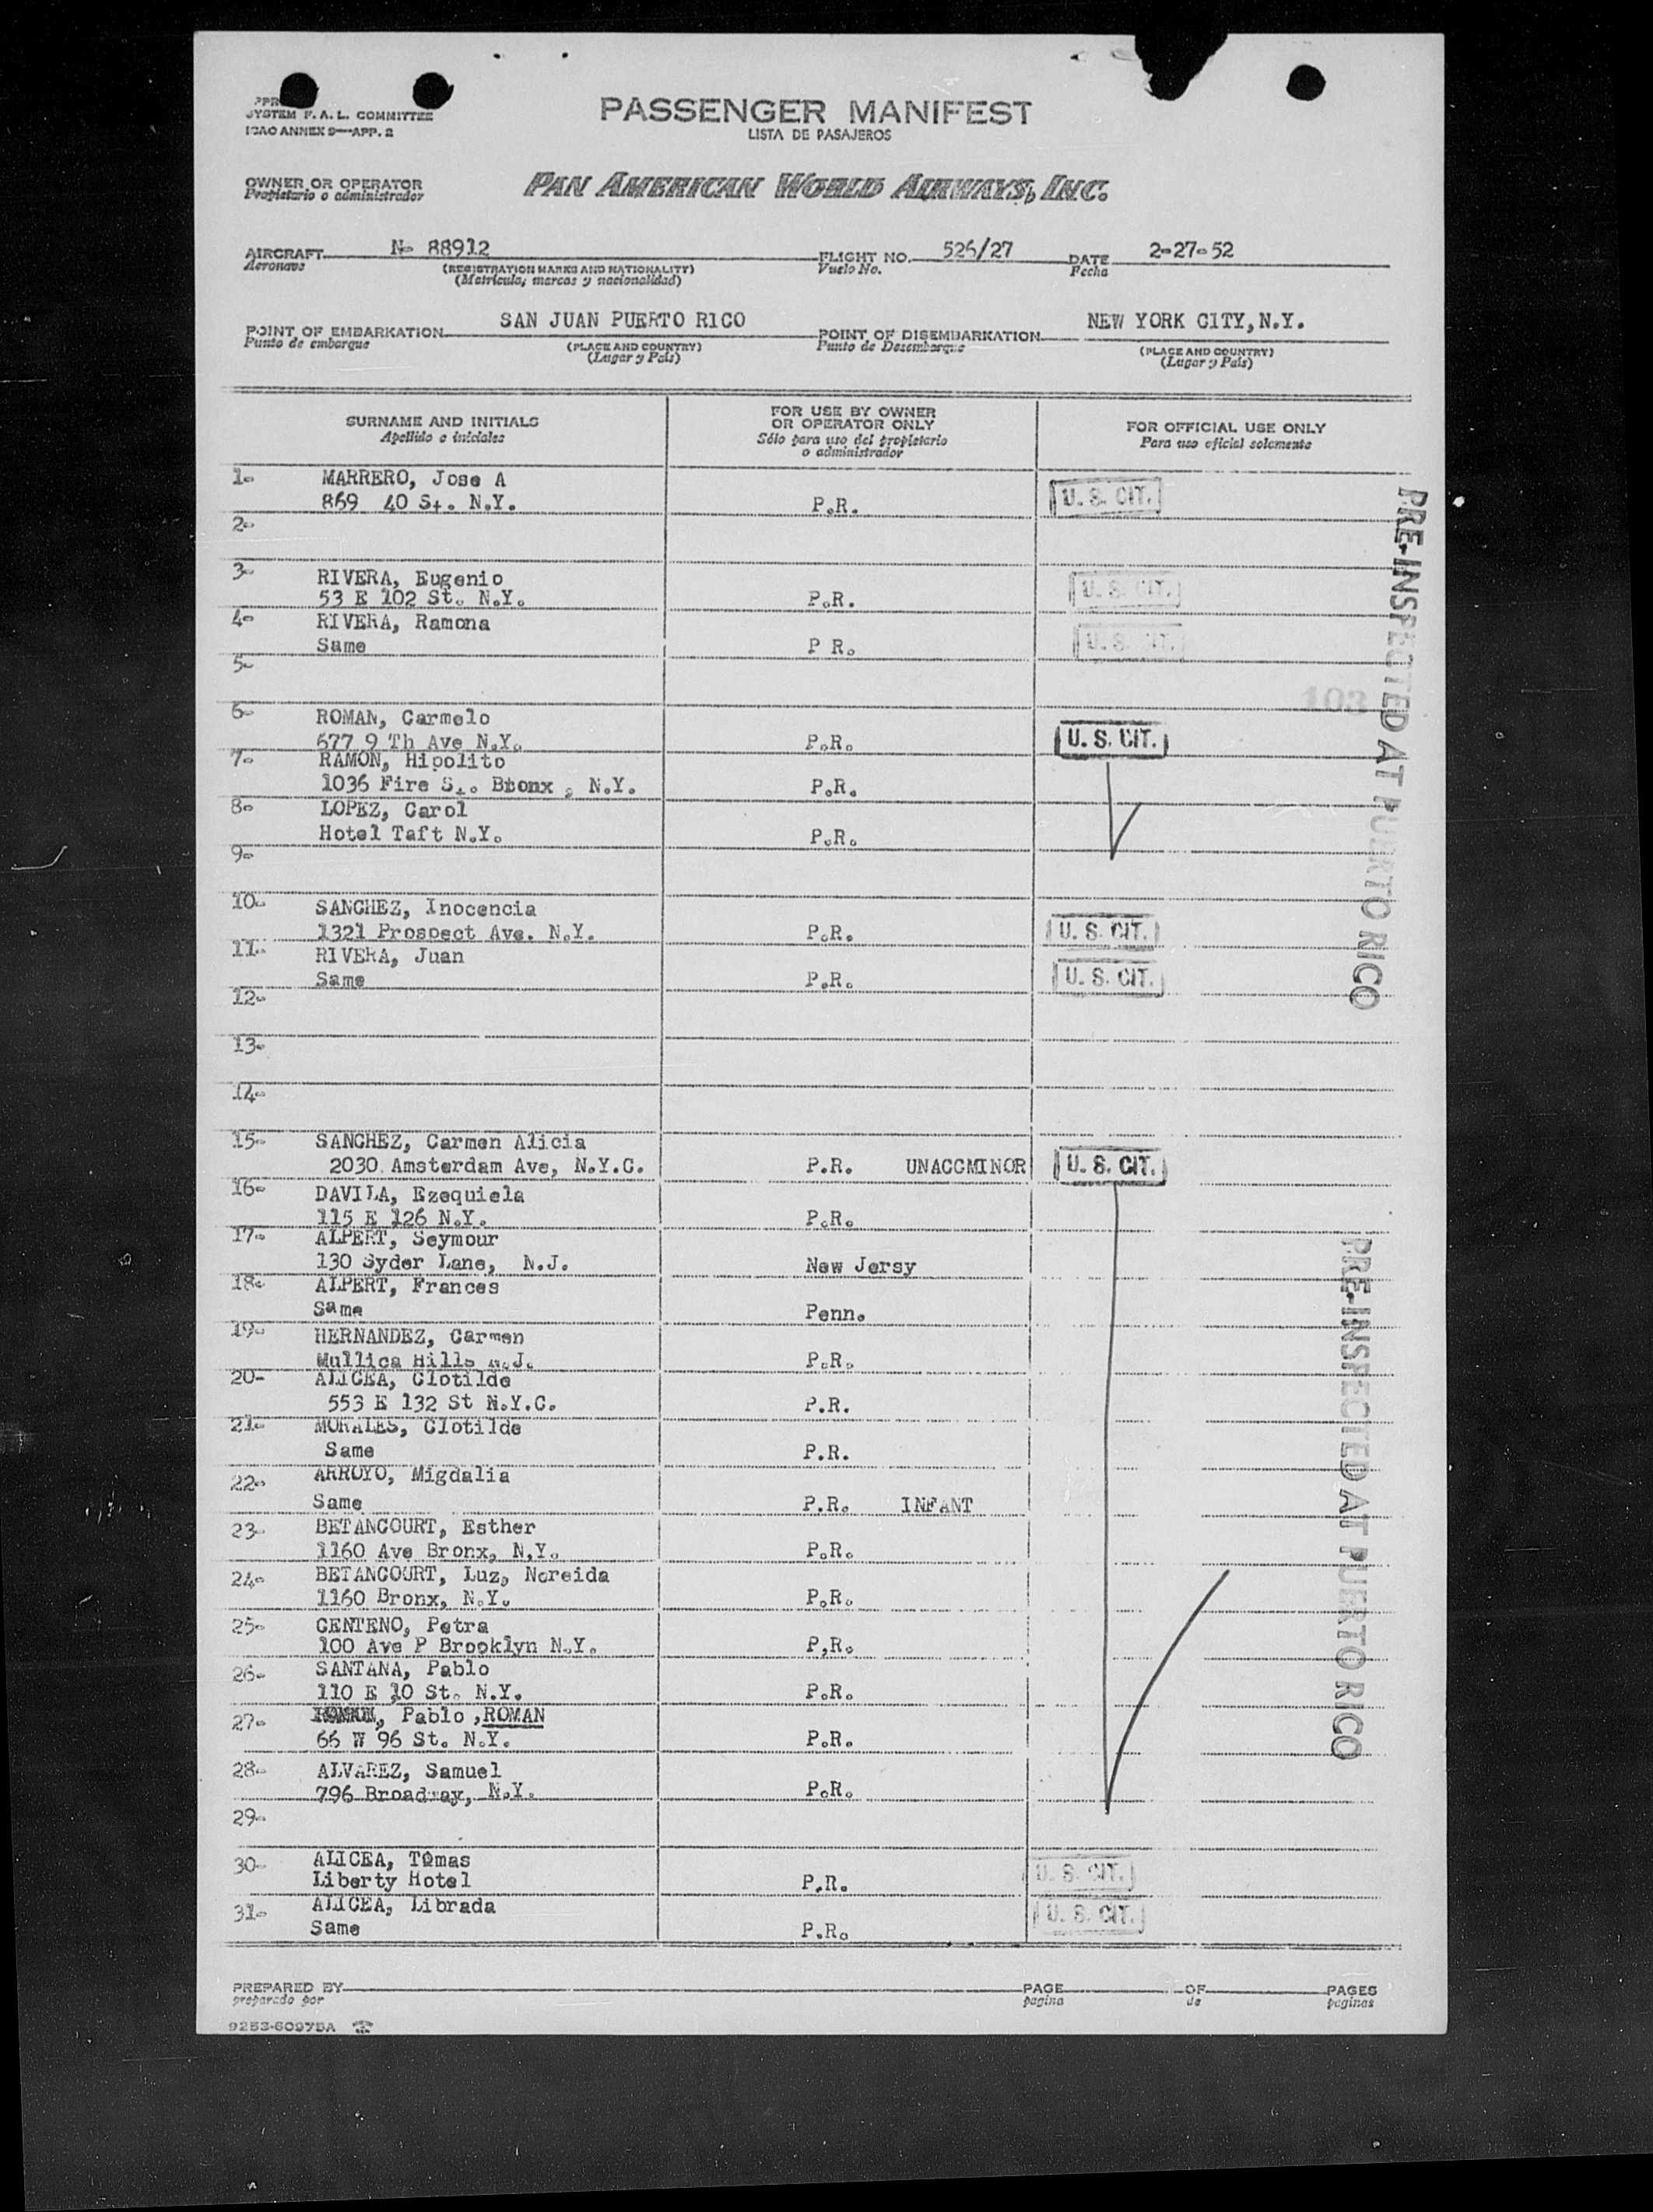 SYSTEM F. A. L. COMMITTEE
ICAO ANNEX 9—APP. 2
PASSENGER MANIFEST
LISTA DE PASAJEROS
OWNER OR OPERATOR
Propietario o administrador
PAN AMERICAN WORLD AIRWAYS, INC.
AIRCRAFT N- 88912 FLIGHT NO. 526/27 DATE 2-27-52
Aeronave (REGISTRATION MARKS AND NATIONALITY) Vuelo No. Fecha
(Matrícula, marcas y nacionalidad)
POINT OF EMBARKATION SAN JUAN PUERTO RICO POINT OF DISEMBARKATION NEW YORK CITY, N.Y.
Punto de embarque (PLACE AND COUNTRY) Punto de Desembarque (PLACE AND COUNTRY)
(Lugar y País) (Lugar y País)
SURNAME AND INITIALS FOR USE BY OWNER OR OPERATOR ONLY FOR OFFICIAL USE ONLY
Apellido e iniciales Sólo para uso del propietario o administrador Para uso oficial solamente
1- MARRERO, Jose A
869 40 St. N.Y. P.R. U. S. CIT.
2-
3- RIVERA, Eugenio
53 E 102 St. N.Y. P.R. U. S. CIT.
4- RIVERA, Ramona
Same P R. U. S. CIT.
5-
103
6- ROMAN, Carmelo
677 9 Th Ave N.Y. P.R. U. S. CIT.
7- RAMON, Hipolito
1036 Fire St. Btonx , N.Y. P.R.
8- LOPEZ, Carol
Hotel Taft N.Y. P.R.
9-
10- SANCHEZ, Inocencia
1321 Prospect Ave. N.Y. P.R. U. S. CIT.
11- RIVERA, Juan
Same P.R. U. S. CIT.
12-
13-
14-
PRE-INSPECTED AT PUERTO RICO
15- SANCHEZ, Carmen Alicia
2030 Amsterdam Ave, N.Y.C. P.R. UNACCMINOR U. S. CIT.
16- DAVILA, Ezequiela
115 E 126 N.Y. P.R.
17- ALPERT, Seymour
130 Syder Lane, N.J. New Jersy
18- ALPERT, Frances
Same Penn.
19- HERNANDEZ, Carmen
Mullica Hills N.J. P.R.
20- ALICEA, Clotilde
553 E 132 St N.Y.C. P.R.
21- MORALES, Clotilde
Same P.R.
22- ARROYO, Migdalia
Same P.R. INFANT
23- BETANCOURT, Esther
1160 Ave Bronx, N.Y. P.R.
24- BETANCOURT, Luz, Noreida
1160 Bronx, N.Y. P.R.
25- CENTENO, Petra
100 Ave P Brooklyn N.Y. P,R.
26- SANTANA, Pablo
110 E 10 St. N.Y. P.R.
27- Pablo ,ROMAN
66 W 96 St. N.Y. P.R.
28- ALVAREZ, Samuel
796 Broadway, N.Y. P.R.
29-
30- ALICEA, Tomas
Liberty Hotel P.R. U. S. CIT.
31- ALICEA, Librada
Same P.R. U. S. CIT.
PRE-INSPECTED AT PUERTO RICO
PREPARED BY PAGE OF PAGES
preparado por pagina de paginas